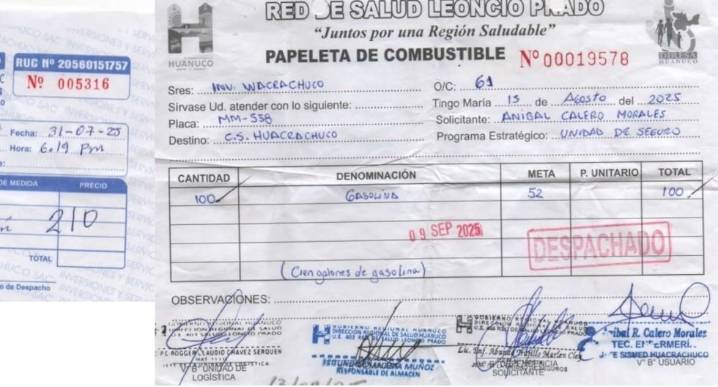 RUC Nº 20560151757
Nº 005316
Fecha: 31-07-25
Hora: 6.19 Pm
DE MEDIDA PRECIO
210
TOTAL
o de Despacho
RED DE SALUD LEONCIO PRADO
"Juntos por una Región Saludable"
HUANUCO
PAPELETA DE COMBUSTIBLE Nº 00019578
DIRESA
HUANUCO
Sres: INV. WACRACHUCO O/C: 61
Sirvase Ud. atender con lo siguiente: Tingo María 15 de Agosto del 2025
Placa: MM-558 Solicitante: ANIBAL CALERO MORALES
Destino: C.S. HUACRACHUCO Programa Estratégico: UNIDAD DE SEGURO
CANTIDAD DENOMINACIÓN META P. UNITARIO TOTAL
100 GASOLINA 52 100
09 SEP 2025
DESPACHADO
(Cien galones de gasolina)
OBSERVACIONES:
GOBIERNO REGIONAL HUANUCO
DIRECCION REGIONAL DE SALUD HUANUCO
RESPONSABLE DE ALMACEN
Anibal R. Calero Morales
TEC. ENFERMERI
SISMED HUACRACHUCO
Vº Bº UNIDAD DE
LOGÍSTICA
SOLICITANTE
Vº Bº USUARIO